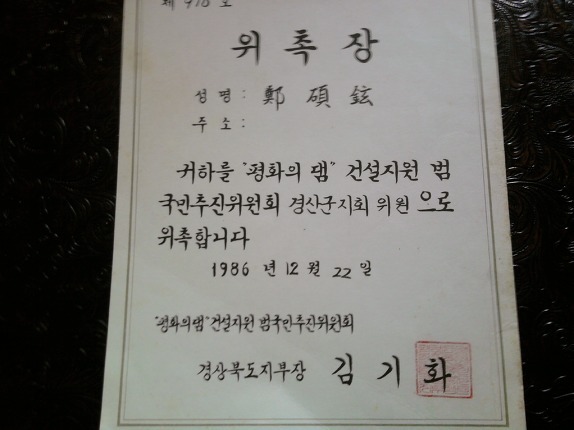 제 910 호
위 촉 장
성 명 : 鄭 碩 鉉
주 소 :
귀하를 "평화의 댐" 건설지원 범
국민추진위원회 경산군지회 위원 으로
위촉합니다
1986 년 12 월 22 일
"평화의댐" 건설지원 범국민추진위원회
경상북도지부장 김 기 화